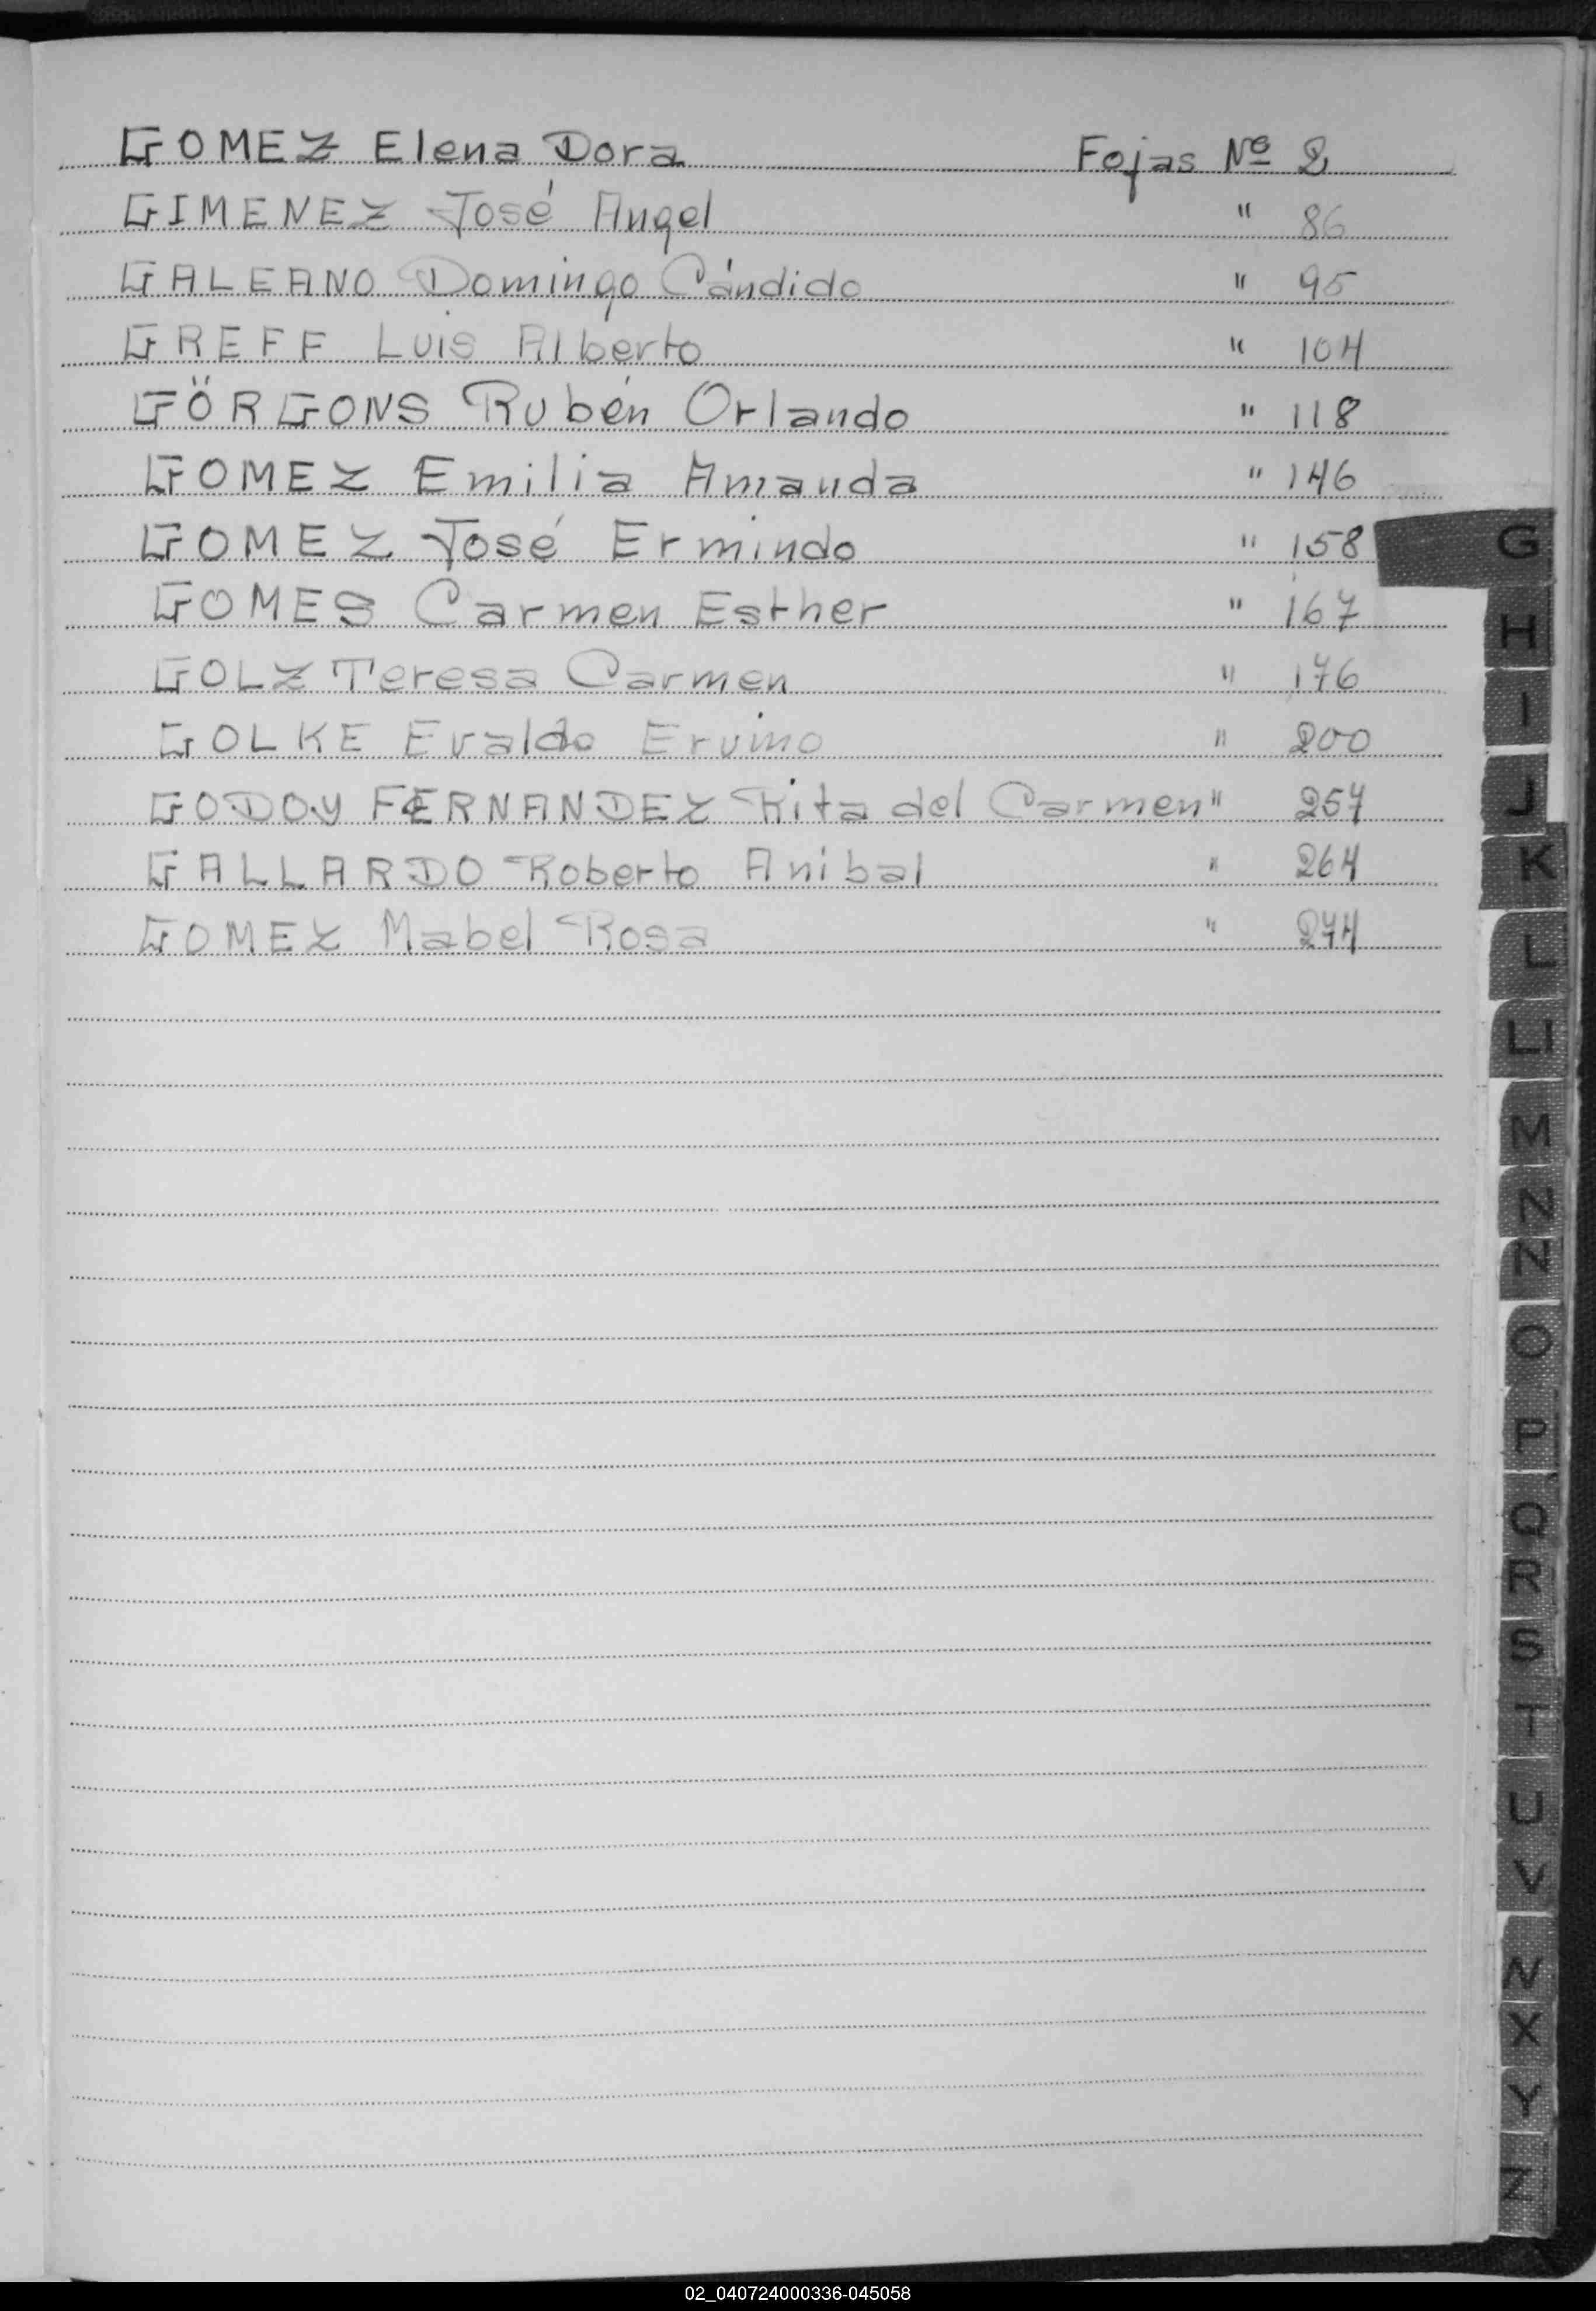 GOMEZ Elena Dora Fojas Nº 2
GIMENEZ José Angel " 86
GALEANO Domingo Cándido " 95
GREFF Luis Alberto " 104
GÖRGONS Rubén Orlando " 118
GOMEZ Emilia Amanda " 146
GOMEZ José Ermindo " 158
GOMES Carmen Esther " 167
GOLZ Teresa Carmen " 176
GOLKE Evaldo Ervino " 200
GODOY FERNANDEZ Rita del Carmen " 257
GALLARDO Roberto Anibal " 264
GOMEZ Mabel Rosa " 274
G
H
I
J
K
L
Ll
M
N
Ñ
O
P
Q
R
S
T
U
V
W
X
Y
Z
02_040724000336-045058